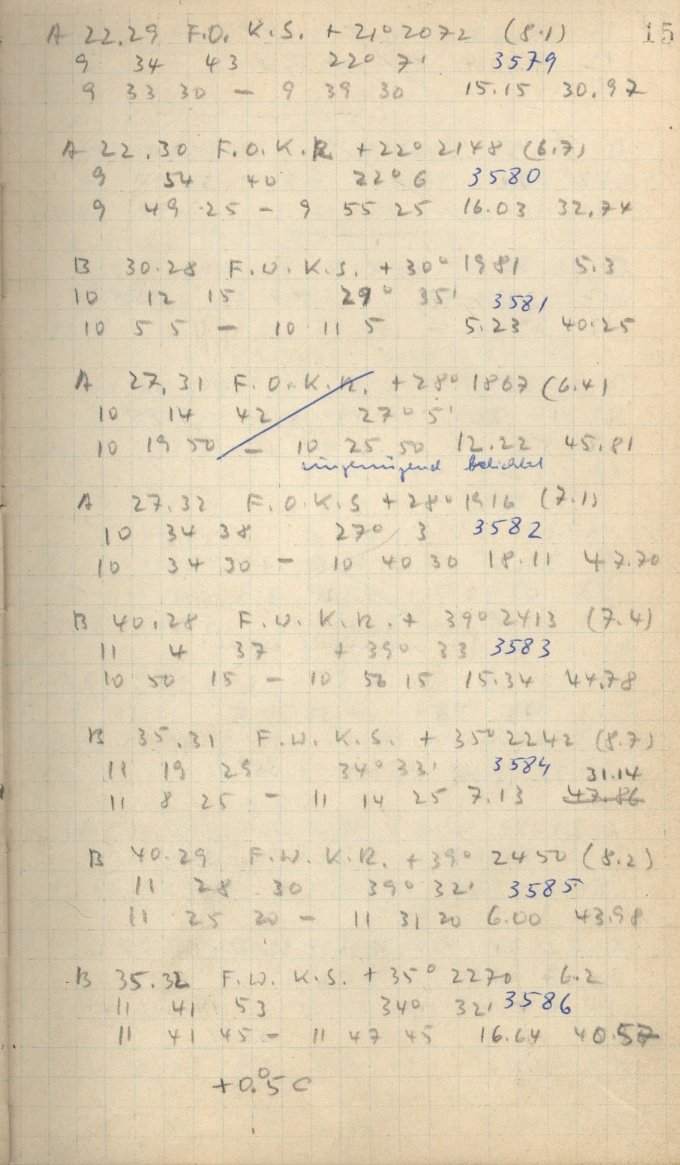 A 22.29 F.O. K.S. + 21° 2072 (8.1) 15
9 34 43 22° 7' 3579
9 33 30 - 9 39 30 15.15 30.97
A 22.30 F.O.K.R. +22° 2148 (6.7)
9 54 40 22° 6 3580
9 49 25 - 9 55 25 16.03 32.74
B 30.28 F.W.K.S. +30° 1981 5.3
10 12 15 29° 35' 3581
10 5 5 - 10 11 5 5.23 40.25
A 27.31 F.O.K.R. +28° 1867 (6.4)
10 14 42 27° 5'
10 19 50 - 10 25 50 12.22 45.81
ungenügend belichtet
A 27.32 F.O.K.S +28° 1916 (7.1)
10 34 38 27° 3 3582
10 34 30 - 10 40 30 18.11 47.70
B 40.28 F.W.K.R. + 39° 2413 (7.4)
11 4 37 + 39° 33 3583
10 50 15 - 10 56 15 15.34 44.78
B 35.31 F.W.K.S. + 35° 2242 (8.7)
11 19 29 34° 33' 3584 31.14
11 8 25 - 11 14 25 7.13 47.86
B 40.29 F.W.K.R. +39° 2450 (8.2)
11 28 30 39° 32' 3585
11 25 20 - 11 31 20 6.00 43.98
B 35.32 F.W. K.S. +35° 2270 6.2
11 41 53 34° 32' 3586
11 41 45 - 11 47 45 16.64 40.57
+0.°5 C